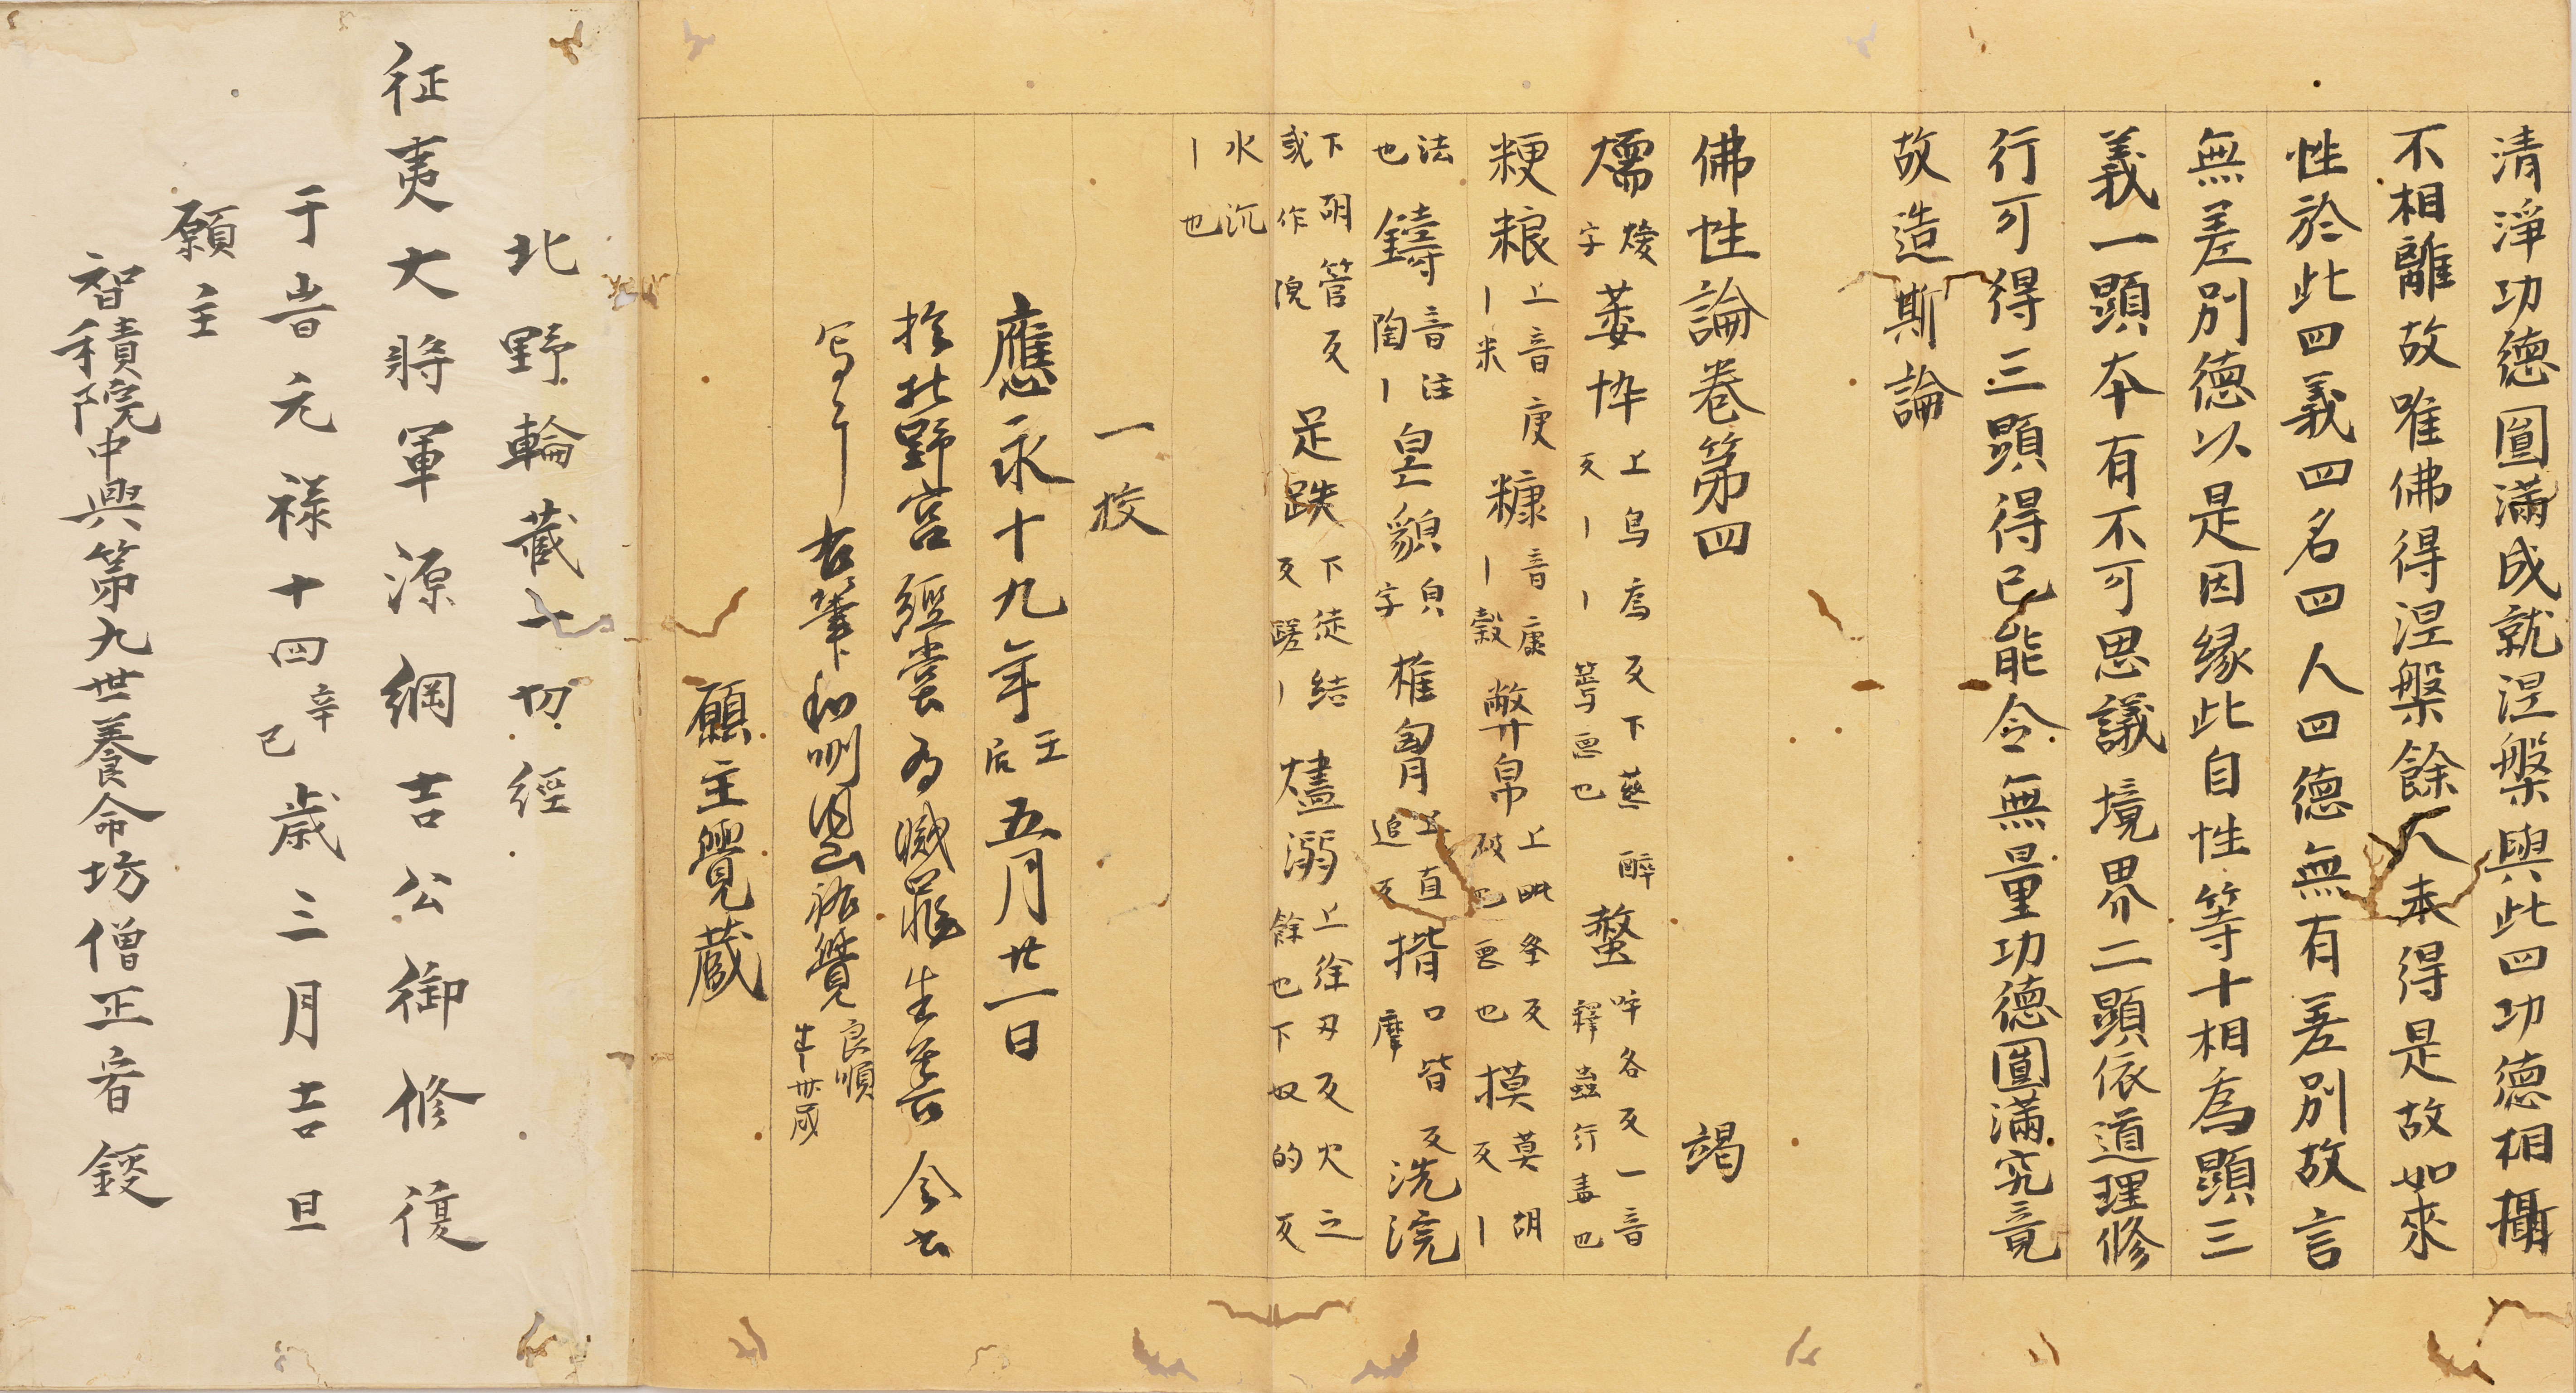 清淨功德圓滿成就涅槃與此四功德相攝
不相離故唯佛得涅槃餘人未得是故如來
性於此四義四名四人四德無有差別故言
無差別德以是因緣此自性等十相為顯三
義一顯本有不可思議境界二顯依道理修
行可得三顯得已能令無量功德圓滿究竟
故造斯論
佛性論卷第四 竭
燸 㷟字 萎忰 上烏為反下慈醉反丨丨 螫 呼各反一音釋蟲行毒也
粳粮 上音庚丨米 糠 音康丨穀 弊帛 上毗祭反破也悪也 摸 莫胡反丨
法也 鑄 音注陶丨 皃貌 皃字 椎胷 上直追反 揩 口皆反摩 洗浣
下胡管反或作 足跌 下徒結反蹉丨 燼溺 上徐刃反火之餘也下奴的反
水沉丨也
一校
應永十九年壬辰五月廿一日
於北野宮經堂為滅罪生善
写了 右筆和州 祐覺 良順生年卅歲
願主覺藏
北野輪藏一切經
征夷大將軍源綱吉公御修復
于旹元禄十四辛巳歲三月吉旦
願主
智積院中興第九世養命坊僧正